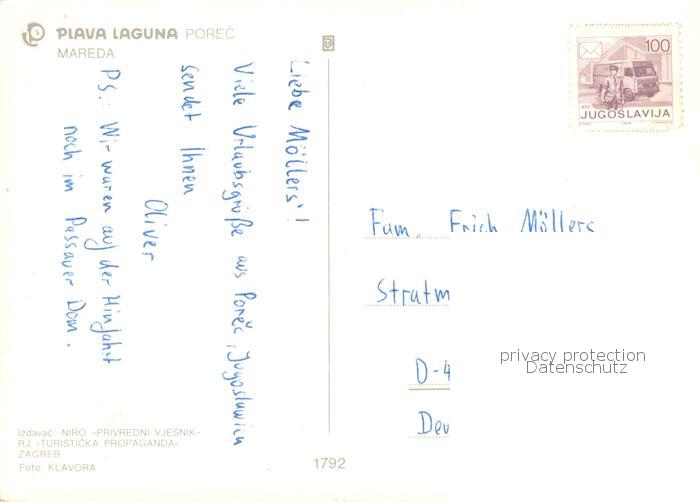 PLAVA LAGUNA POREČ
MAREDA
Liebe Möllers'!
Viele Urlaubsgrüße aus Poreč, Jugoslawien
sendet Ihnen
Oliver
PS.: Wir waren auf der Hinfahrt
noch im Passauer Dom.
Izdavač: NIRO -PRIVREDNI VJESNIK-
RJ -TURISTIČKA PROPAGANDA-
ZAGREB
Foto: KLAVORA
1792
100
PTT
JUGOSLAVIJA
Fam. Erich Möllers
Stratm
D-4
Dev
privacy protection
Datenschutz